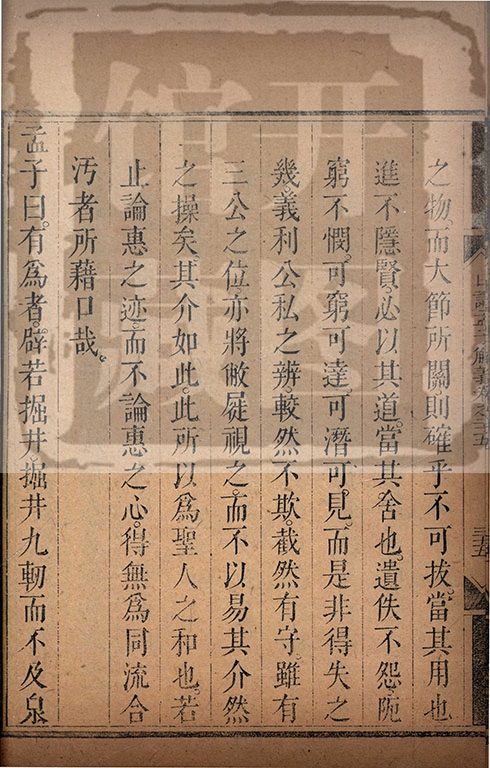 之物。而大節所關。則確乎不可拔。當其用也
進不隱賢。必以其道。當其舍也。遺佚不怨。阨
窮不憫。可窮可達。可潛可見。而是非得失之
幾。義利公私之辨。較然不欺。截然有守。雖有
三公之位。亦將敝屣視之。而不以易其介然
之操矣。其介如此。此所以爲聖人之和也。若
止論惠之迹。而不論惠之心。得無爲同流合
汚者所藉口哉。
孟子曰。有爲者。辟若掘井。掘井九軔而不及泉